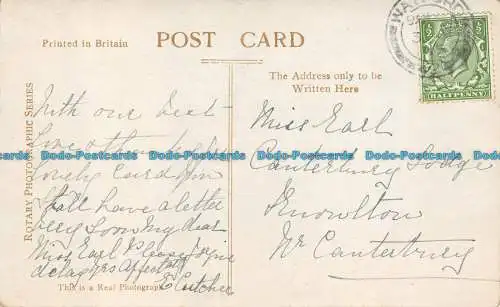 Printed in Britain
POST CARD
The Address only to be
Written Here
ROTARY PHOTOGRAPHIC SERIES
With our best
love &
lovely card you
shall have a letter
very soon my dear
Miss Earl Please forgive
delay yrs affectly
E Cutcher
This is a Real Photograph
Miss Earl
Canterbury Lodge
Knowlton
Nr Canterbury
HALFPENNY
Dodo-Postcards Dodo-Postcards Dodo-Postcards Dodo-Postcards